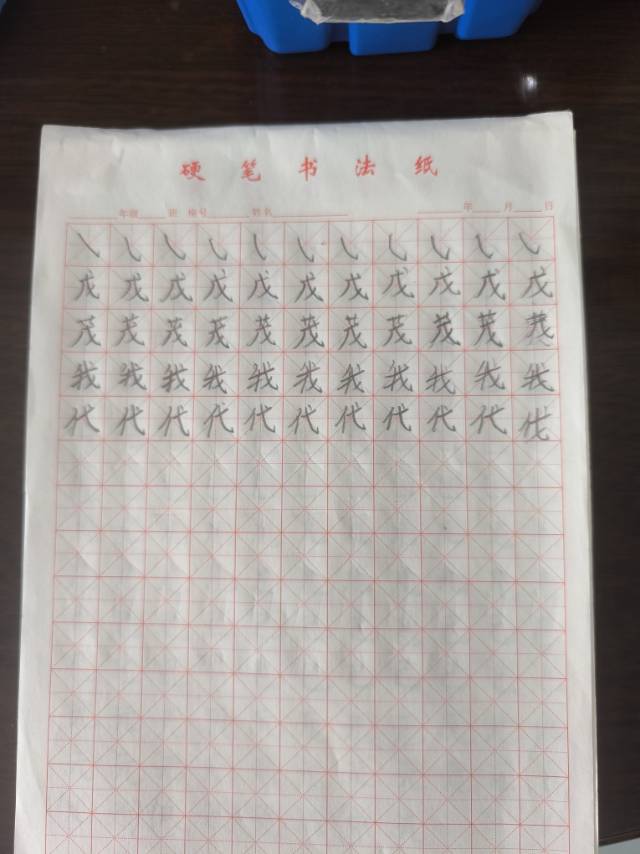 硬笔书法纸
年级 班 座号 姓名 年 月 日
㇂㇂㇂㇂㇂㇂㇂㇂㇂㇂㇂
戊戊戊戊戊戊戊戊戊戊戊
茂茂茂茂茂茂茂茂茂茂茂
我我我我我我我我我我我
代代代代代代代代代代代